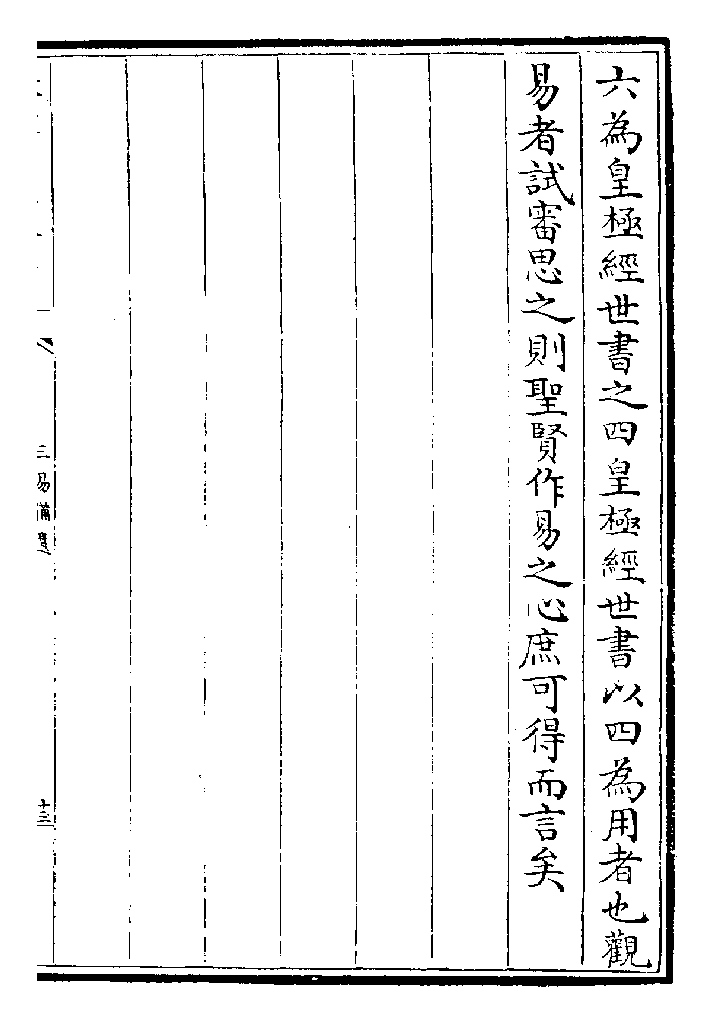 六為皇極經世書之四皇極經世書以四為用者也觀
易者試審思之則聖賢作易之心庶可得而言矣
三易備遺
十三